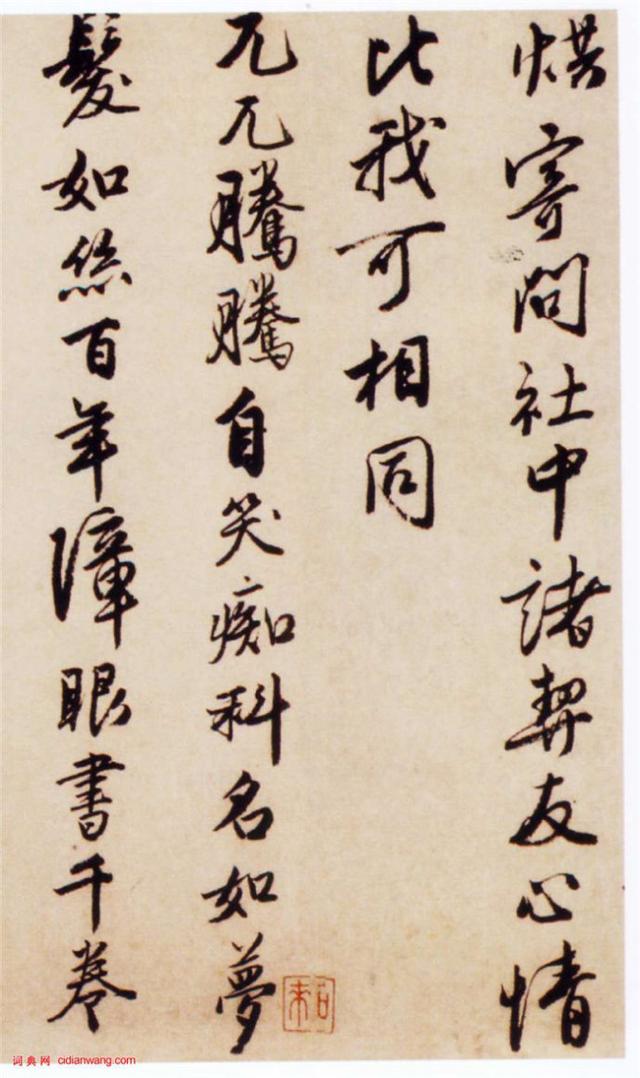 烘寄问社中诸契友心情
比我可相同
兀兀騰騰自笑痴科名如夢
髮如絲百年障眼書千卷
词典网 cidianwang.com